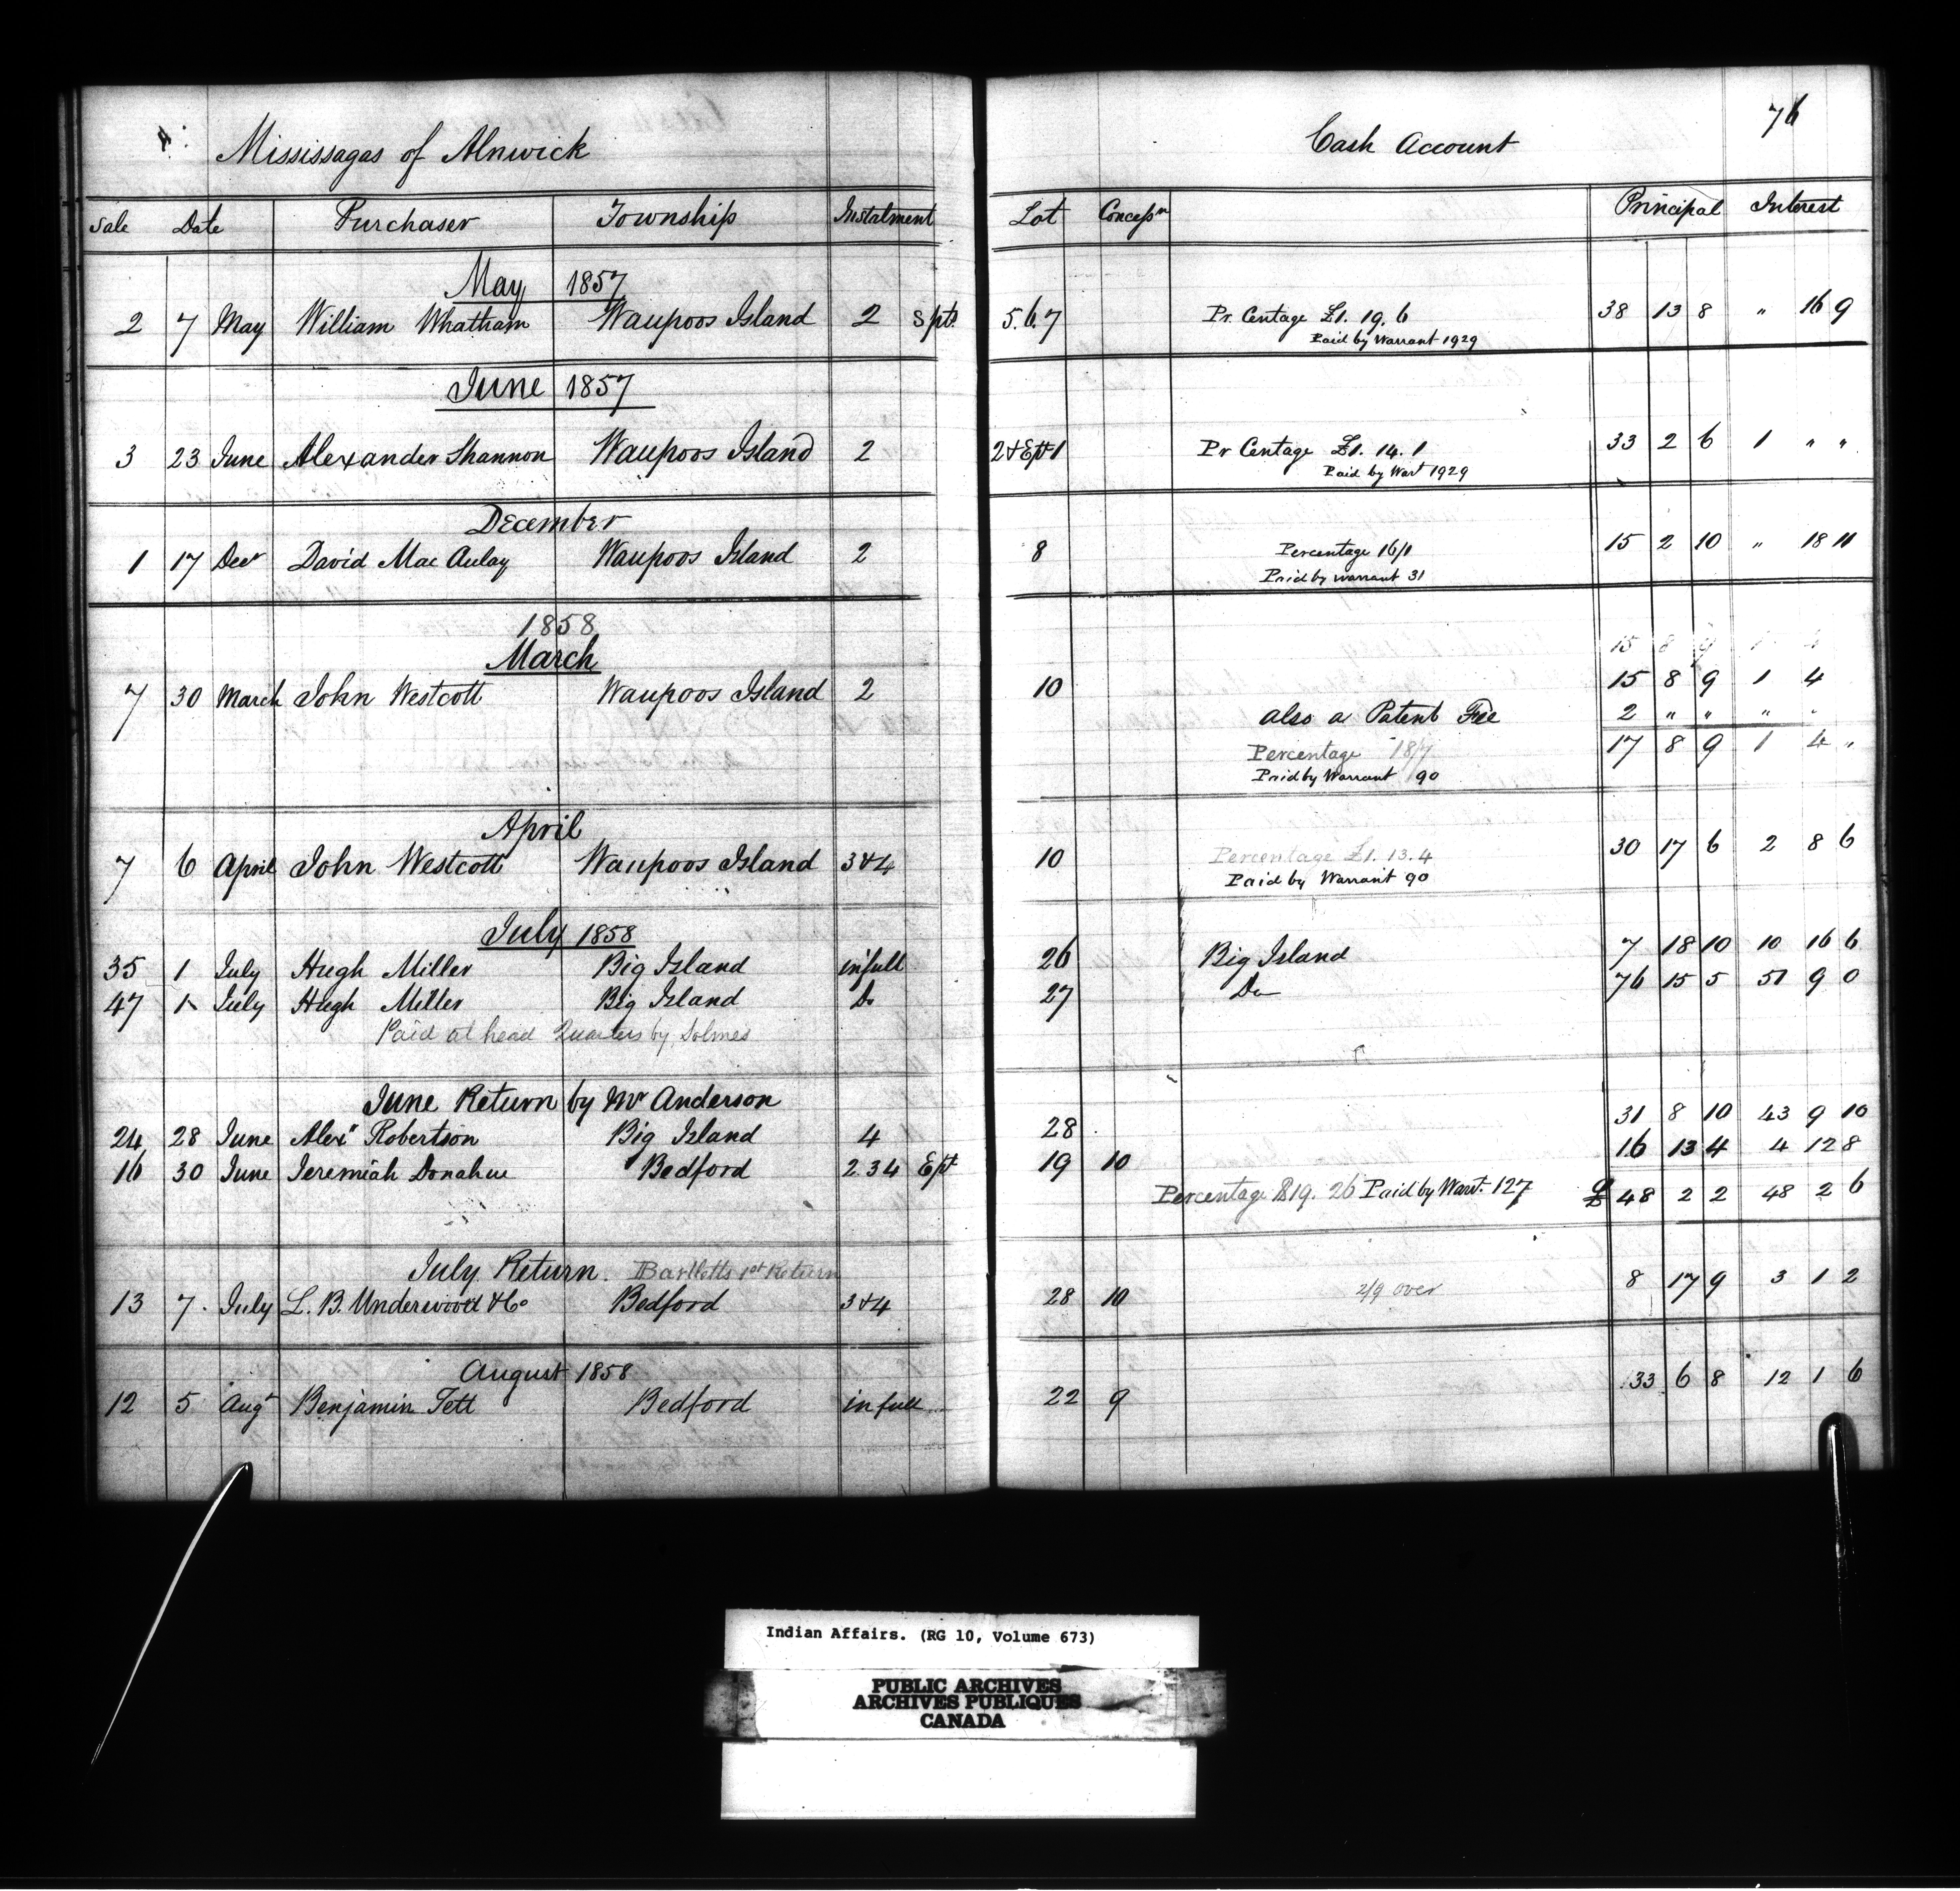 Mississagas of Alnwick
Cash Account 76
Sale Date Purchaser Township Instalment Lot Concessn Principal Interest
May 1857
2 7 May William Whattam Waupoos Island 2 S pt. 5.6.7 Pr. Centage £1. 19. 6 38 13 8 " 16 9
Paid by Warrant 1929
June 1857
3 23 June Alexander Shannon Waupoos Island 2 2 & E pt 1 Pr Centage £1. 14. 1 33 2 6 1 " "
Paid by Wart 1929
December
1 17 Decr David Mac Aulay Waupoos Island 2 8 Percentage 16/1 15 2 10 " 18 11
Paid by warrant 31
1858
March
15 8 9 1 4
7 30 March John Westcott Waupoos Island 2 10 15 8 9 1 4
also a Patent Fee 2 " " " "
Percentage 18/7 17 8 9 1 4 "
Paid by Warrant 90
April
7 6 April John Westcott Waupoos Island 3 & 4 10 Percentage £1. 13. 4 30 17 6 2 8 6
Paid by Warrant 90
July 1858
35 1 July Hugh Miller Big Island in full 26 Big Island 7 18 10 10 16 6
47 1 July Hugh Miller Big Island Do 27 Do 76 15 5 51 9 0
Paid at head Quarters by Solmes
June Return by Mr Anderson
24 28 June Alexr Robertson Big Island 4 28 31 8 10 43 9 10
16 30 June Jeremiah Donahue Bedford 2 3 4 E pt 19 10 16 13 4 4 12 8
Percentage $19. 26 Paid by Wart. 127 £ 48 2 2 48 2 6
July Return. Bartletts 1st Return
13 7 July L. B. Underwood & Co Bedford 3 & 4 28 10 2/9 over 8 17 9 3 1 2
August 1858
12 5 Augt Benjamin Tett Bedford in full 22 9 33 6 8 12 1 6
Indian Affairs. (RG 10, Volume 673)
PUBLIC ARCHIVES
ARCHIVES PUBLIQUES
CANADA